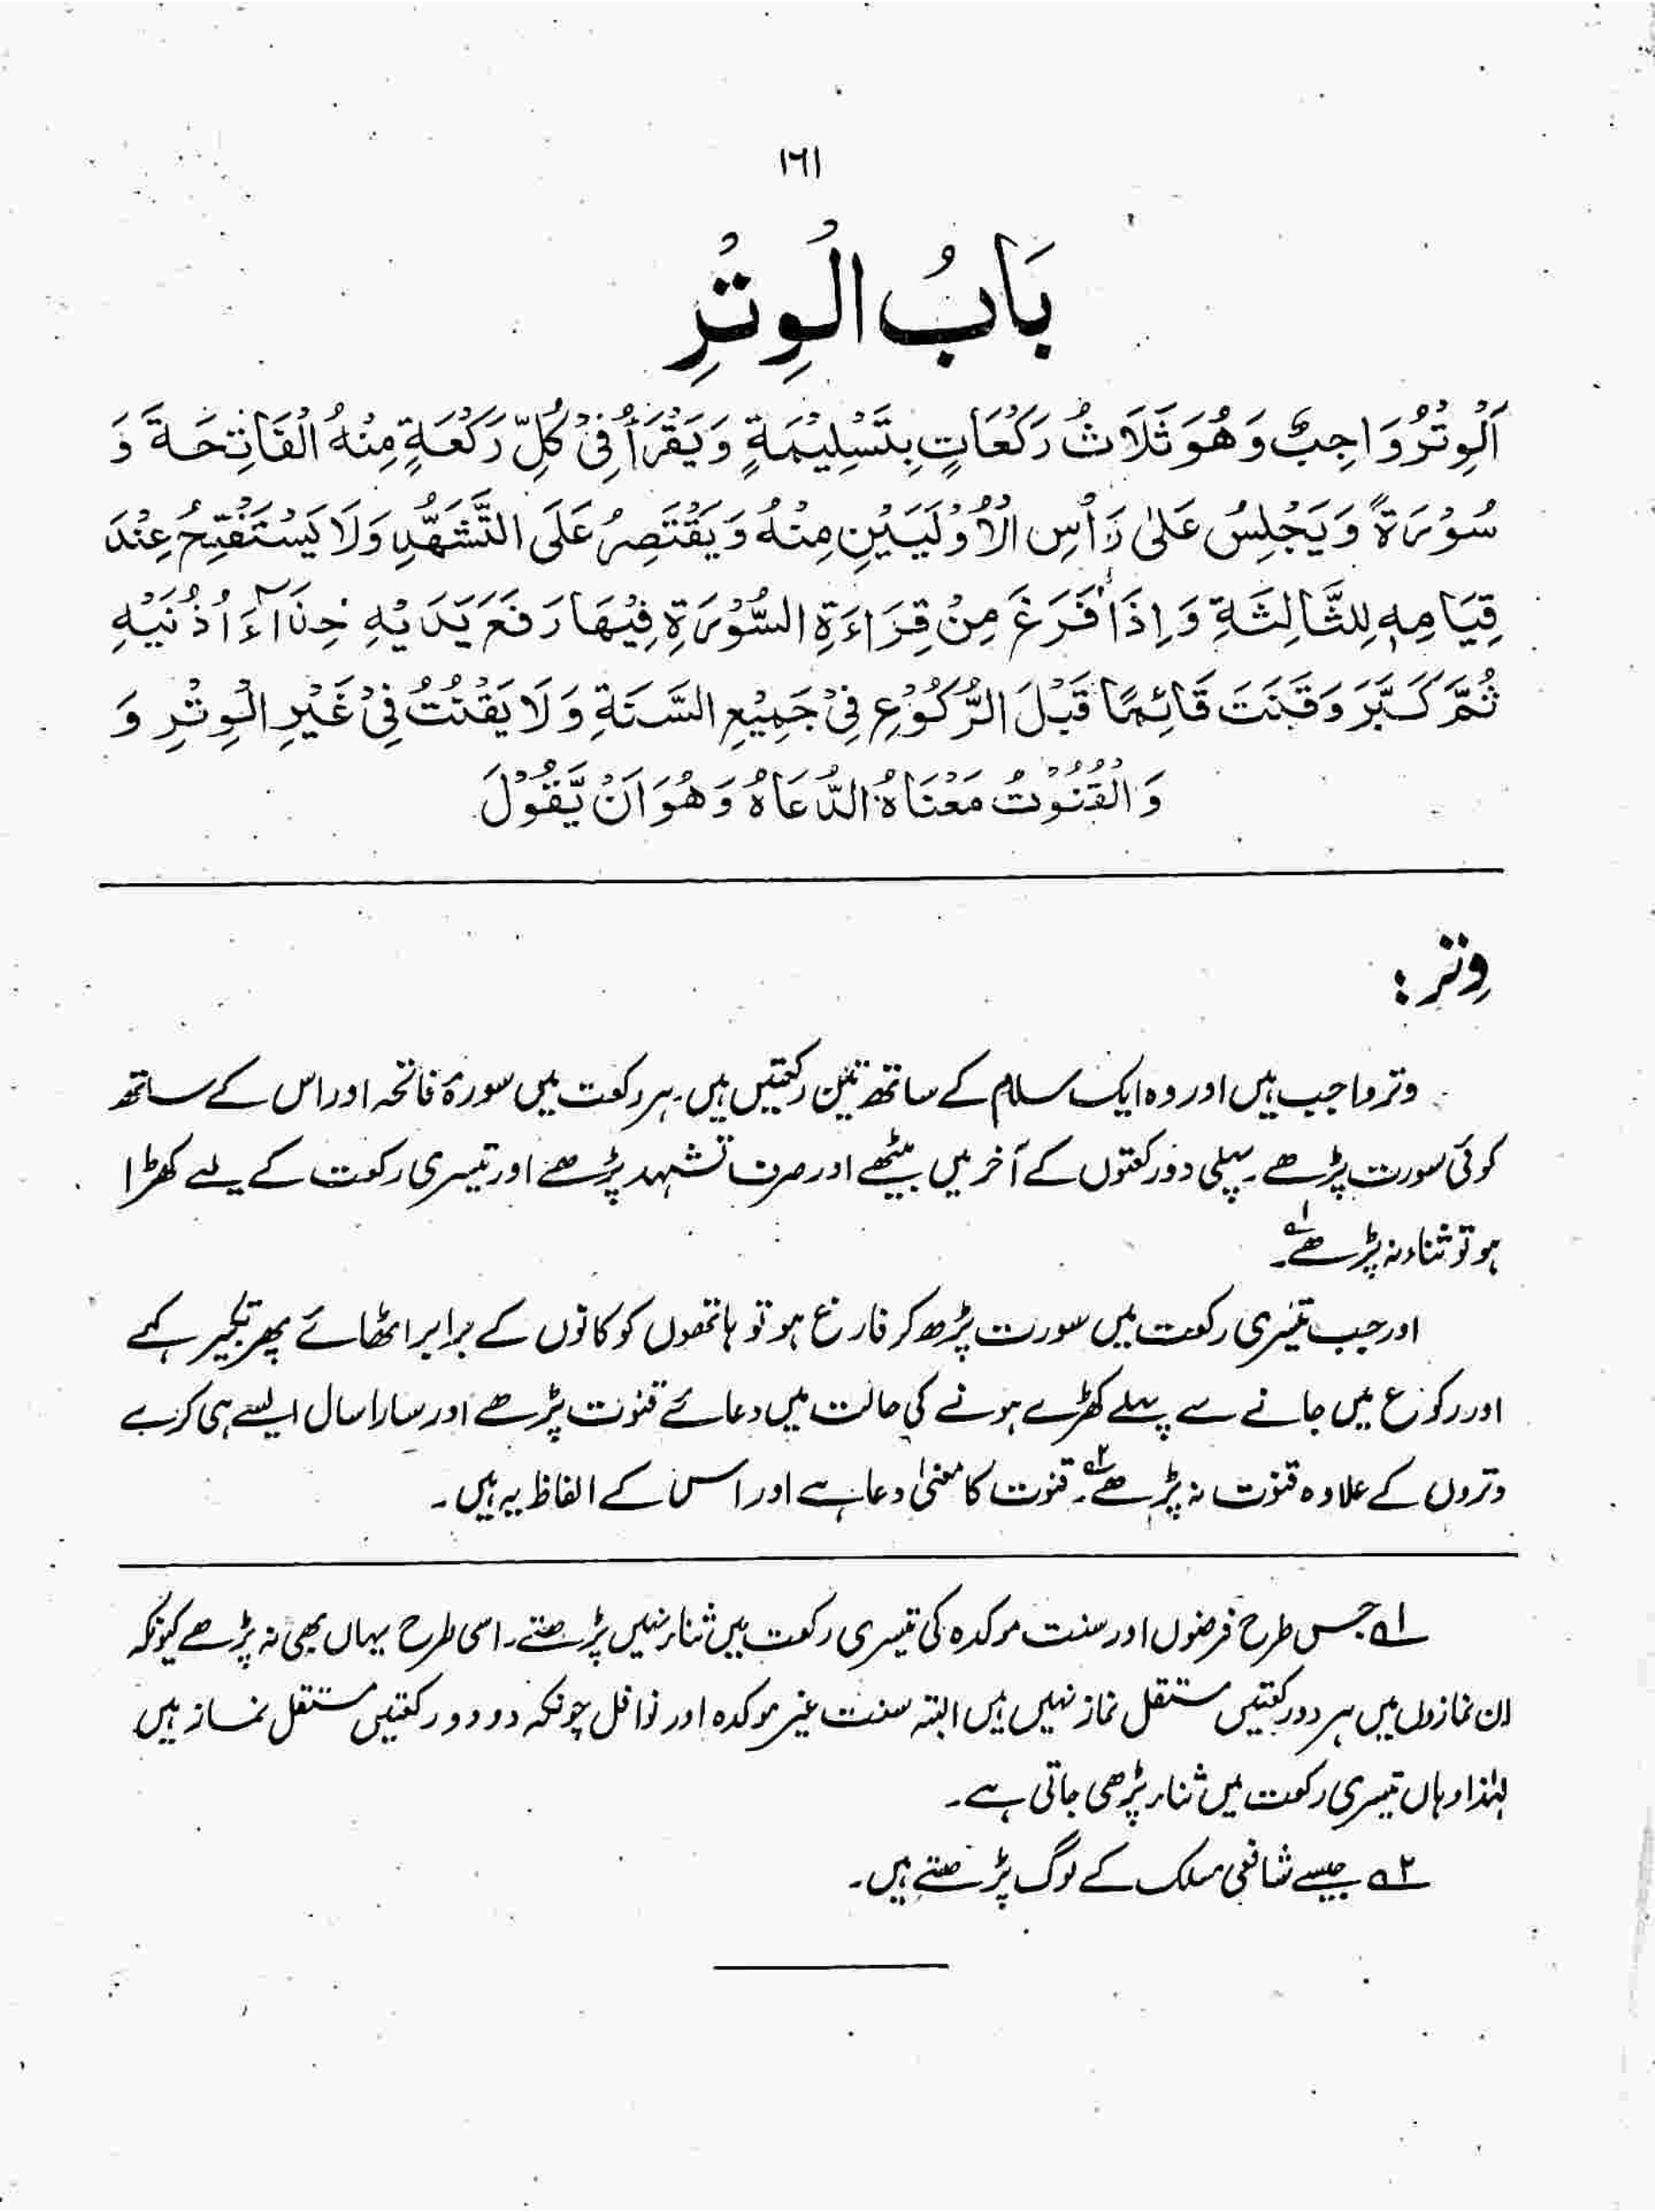 ۱۶۱
بَابُ الْوِتْرِ
اَلْوِتْرُ وَاجِبٌ وَهُوَ ثَلَاثُ رَكْعَاتٍ بِتَسْلِيْمَةٍ وَيَقْرَأُ فِيْ كُلِّ رَكْعَةٍ مِنْهُ الْفَاتِحَةَ وَ
سُوْرَةً وَيَجْلِسُ عَلٰى رَأْسِ الْاُوْلَيَيْنِ مِنْهُ وَيَقْتَصِرُ عَلَى التَّشَهُّدِ وَلَا يَسْتَفْتِحُ عِنْدَ
قِيَامِهٖ لِلثَّالِثَةِ وَاِذَا فَرَغَ مِنْ قِرَاءَةِ السُّوْرَةِ فِيْهَا رَفَعَ يَدَيْهِ حِذَآءَ اُذُنَيْهِ
ثُمَّ كَبَّرَ وَقَنَتَ قَائِمًا قَبْلَ الرُّكُوْعِ فِيْ جَمِيْعِ السَّنَةِ وَلَا يَقْنُتُ فِيْ غَيْرِ الْوِتْرِ وَ
وَالْقُنُوْتُ مَعْنَاهُ الدُّعَاءُ وَهُوَ اَنْ يَّقُوْلَ
وِتر:
وتر واجب ہیں اور وہ ایک سلام کے ساتھ تین رکعتیں ہیں۔ ہر رکعت میں سورۂ فاتحہ اور اس کے ساتھ
کوئی سورت پڑھے۔ پہلی دو رکعتوں کے آخر میں بیٹھے اور صرف تشہد پڑھے اور تیسری رکعت کے لیے کھڑا
ہو تو ثناء نہ پڑھے۱؎۔
اور جب تیسری رکعت میں سورت پڑھ کر فارغ ہو تو ہاتھوں کو کانوں کے برابر اٹھائے پھر تکبیر کہے
اور رکوع میں جانے سے پہلے کھڑے ہونے کی حالت میں دعائے قنوت پڑھے اور سارا سال ایسے ہی کرے
وتروں کے علاوہ قنوت نہ پڑھے۲؎۔ قنوت کا معنیٰ دعا ہے اور اس کے الفاظ یہ ہیں۔
۱؎ جس طرح فرضوں اور سنت موکدہ کی تیسری رکعت میں ثناء نہیں پڑھتے۔ اسی طرح یہاں بھی نہ پڑھے کیونکہ
ان نمازوں میں ہر دو رکعتیں مستقل نماز نہیں ہیں البتہ سنت غیر موکدہ اور نوافل چونکہ دو دو رکعتیں مستقل نماز ہیں
لہٰذا وہاں تیسری رکعت میں ثناء پڑھی جاتی ہے۔
۲؎ جیسے شافعی مسلک کے لوگ پڑھتے ہیں۔